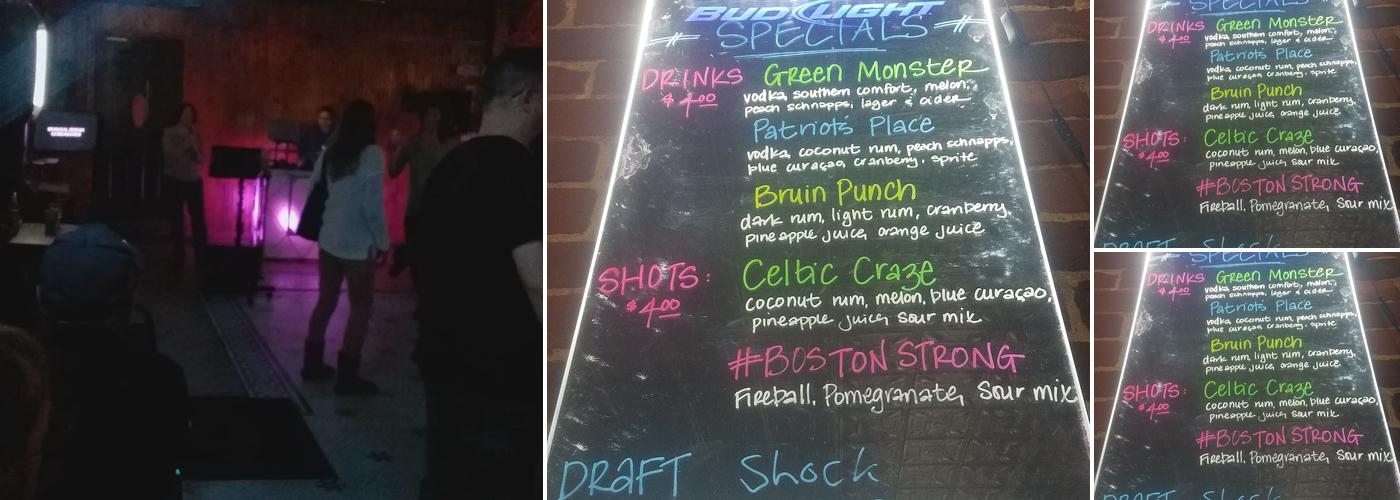 BUD LIGHT
# SPECIALS #
DRINKS Green Monster
$4.00 vodka, southern comfort, melon,
peach schnapps, lager & cider
Patriots Place
vodka, coconut rum, peach schnapps,
blue curaçao, cranberry, sprite
Bruin Punch
dark rum, light rum, cranberry,
pineapple juice, orange juice
SHOTS: Celtic Craze
$4.00 coconut rum, melon, blue curaçao,
pineapple juice, sour mix
#BOSTON STRONG
Fireball, Pomegranate, Sour mix
DRAFT Shock
SPECIALS
DRINKS Green Monster
$4.00 vodka, southern comfort, melon,
peach schnapps, lager & cider
Patriots Place
vodka, coconut rum, peach schnapps,
blue curaçao, cranberry, sprite
Bruin Punch
dark rum, light rum, cranberry,
pineapple juice, orange juice
SHOTS: Celtic Craze
$4.00 coconut rum, melon, blue curaçao,
pineapple juice, sour mix
#BOSTON STRONG
Fireball, Pomegranate, Sour mix
DRAFT Shock
SPECIALS
DRINKS Green Monster
$4.00 vodka, southern comfort, melon,
peach schnapps, lager & cider
Patriots Place
vodka, coconut rum, peach schnapps,
blue curaçao, cranberry, sprite
Bruin Punch
dark rum, light rum, cranberry,
pineapple juice, orange juice
SHOTS: Celtic Craze
$4.00 coconut rum, melon, blue curaçao,
pineapple juice, sour mix
#BOSTON STRONG
Fireball, Pomegranate, Sour mix
DRAFT Shock